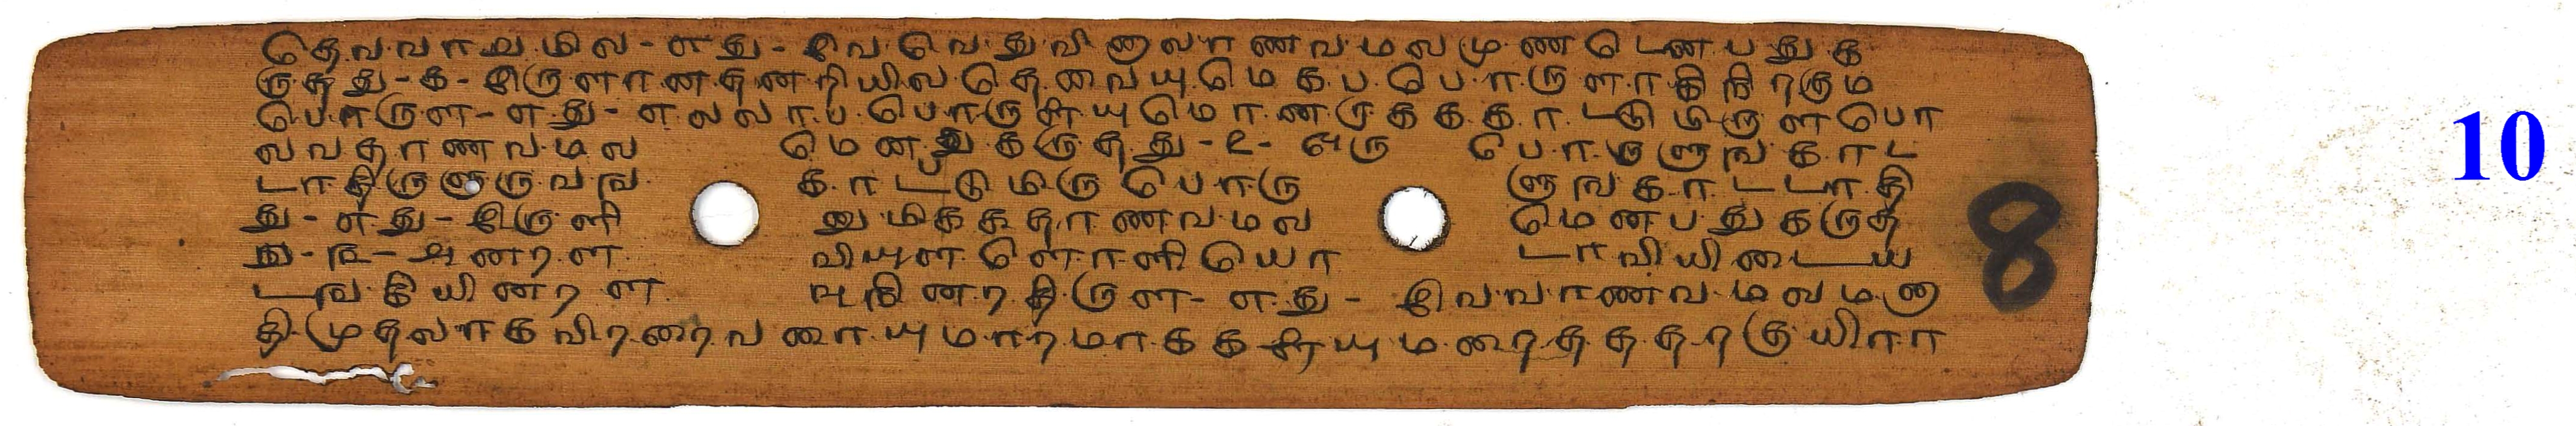 தெவவாவமில - எது - இவவெதுவினாலாணவமலமுணடெணபதுக
ருதது - க - இருளானதனறியிலதெவையுமெகபபொருளாகிநிறகும
பொருள - எது - எலலாபபொருளையுமொணருககககாடடுமிருளபொ
லவதாணவமல மெனதுகருதது - உ - ஒரு பொருளுஙகாட
டாதிருளுருவங காடடுமிருபொரு ளுஙகாடடாதி
து - எது - இருளி னுமிககதாணவமல மெனபதுகருத
து - ௩ - அனறள வியுளளொளியொ டாவியிடைய
டஙகியினறள வுநினறதிருள - எது - இவவாணவமலமனா
திமுதலாகவிறறைவரையுமாறமாககளையுமறைததறகுயிரா
8
10